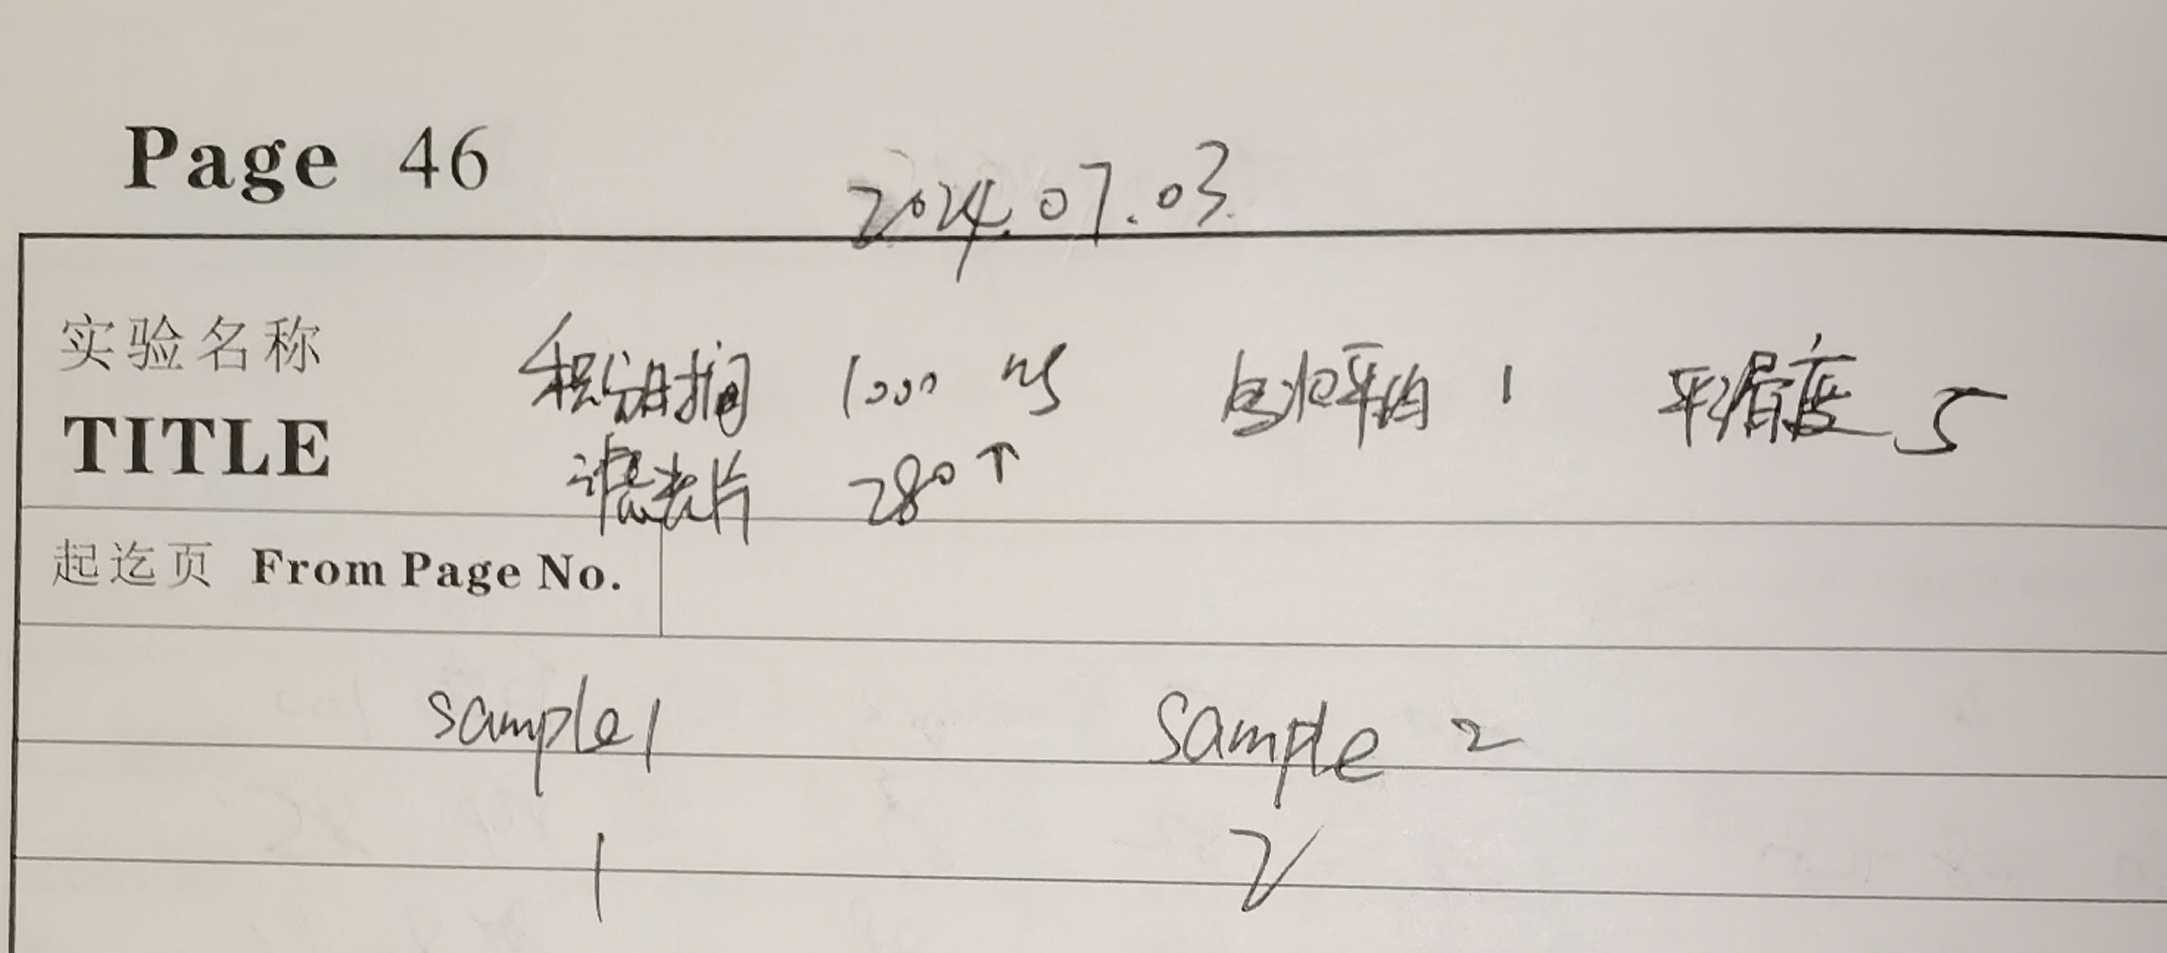 Page 46
2024.07.03
实验名称 积分时间 1000 ms 平均 1 平滑度 5
TITLE 滤光片 280↑
起迄页 From Page No.
sample1 Sample 2
1 2